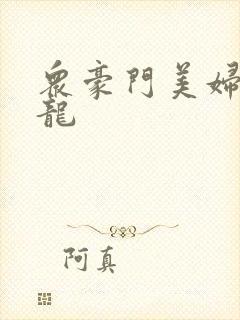 眾豪門美婦
龍
阿真